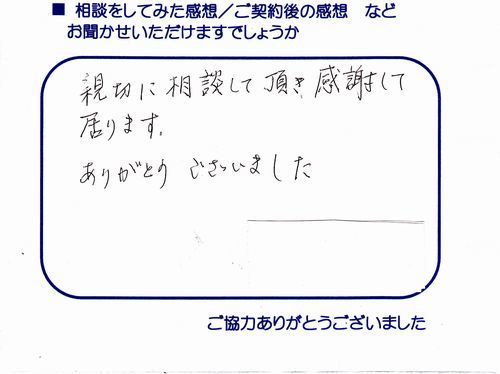 ■ 相談をしてみた感想／ご契約後の感想 など
お聞かせいただけますでしょうか
親切に相談して頂き感謝して
居ります。
ありがとうございました
ご協力ありがとうございました